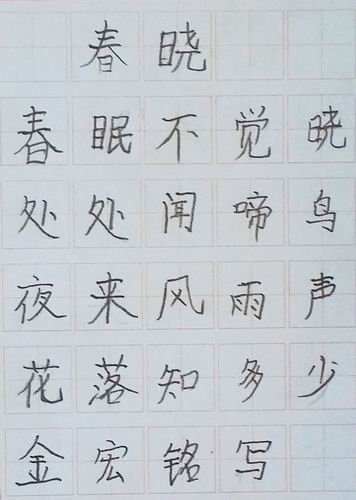 春晓
春眠不觉晓
处处闻啼鸟
夜来风雨声
花落知多少
金宏铭写